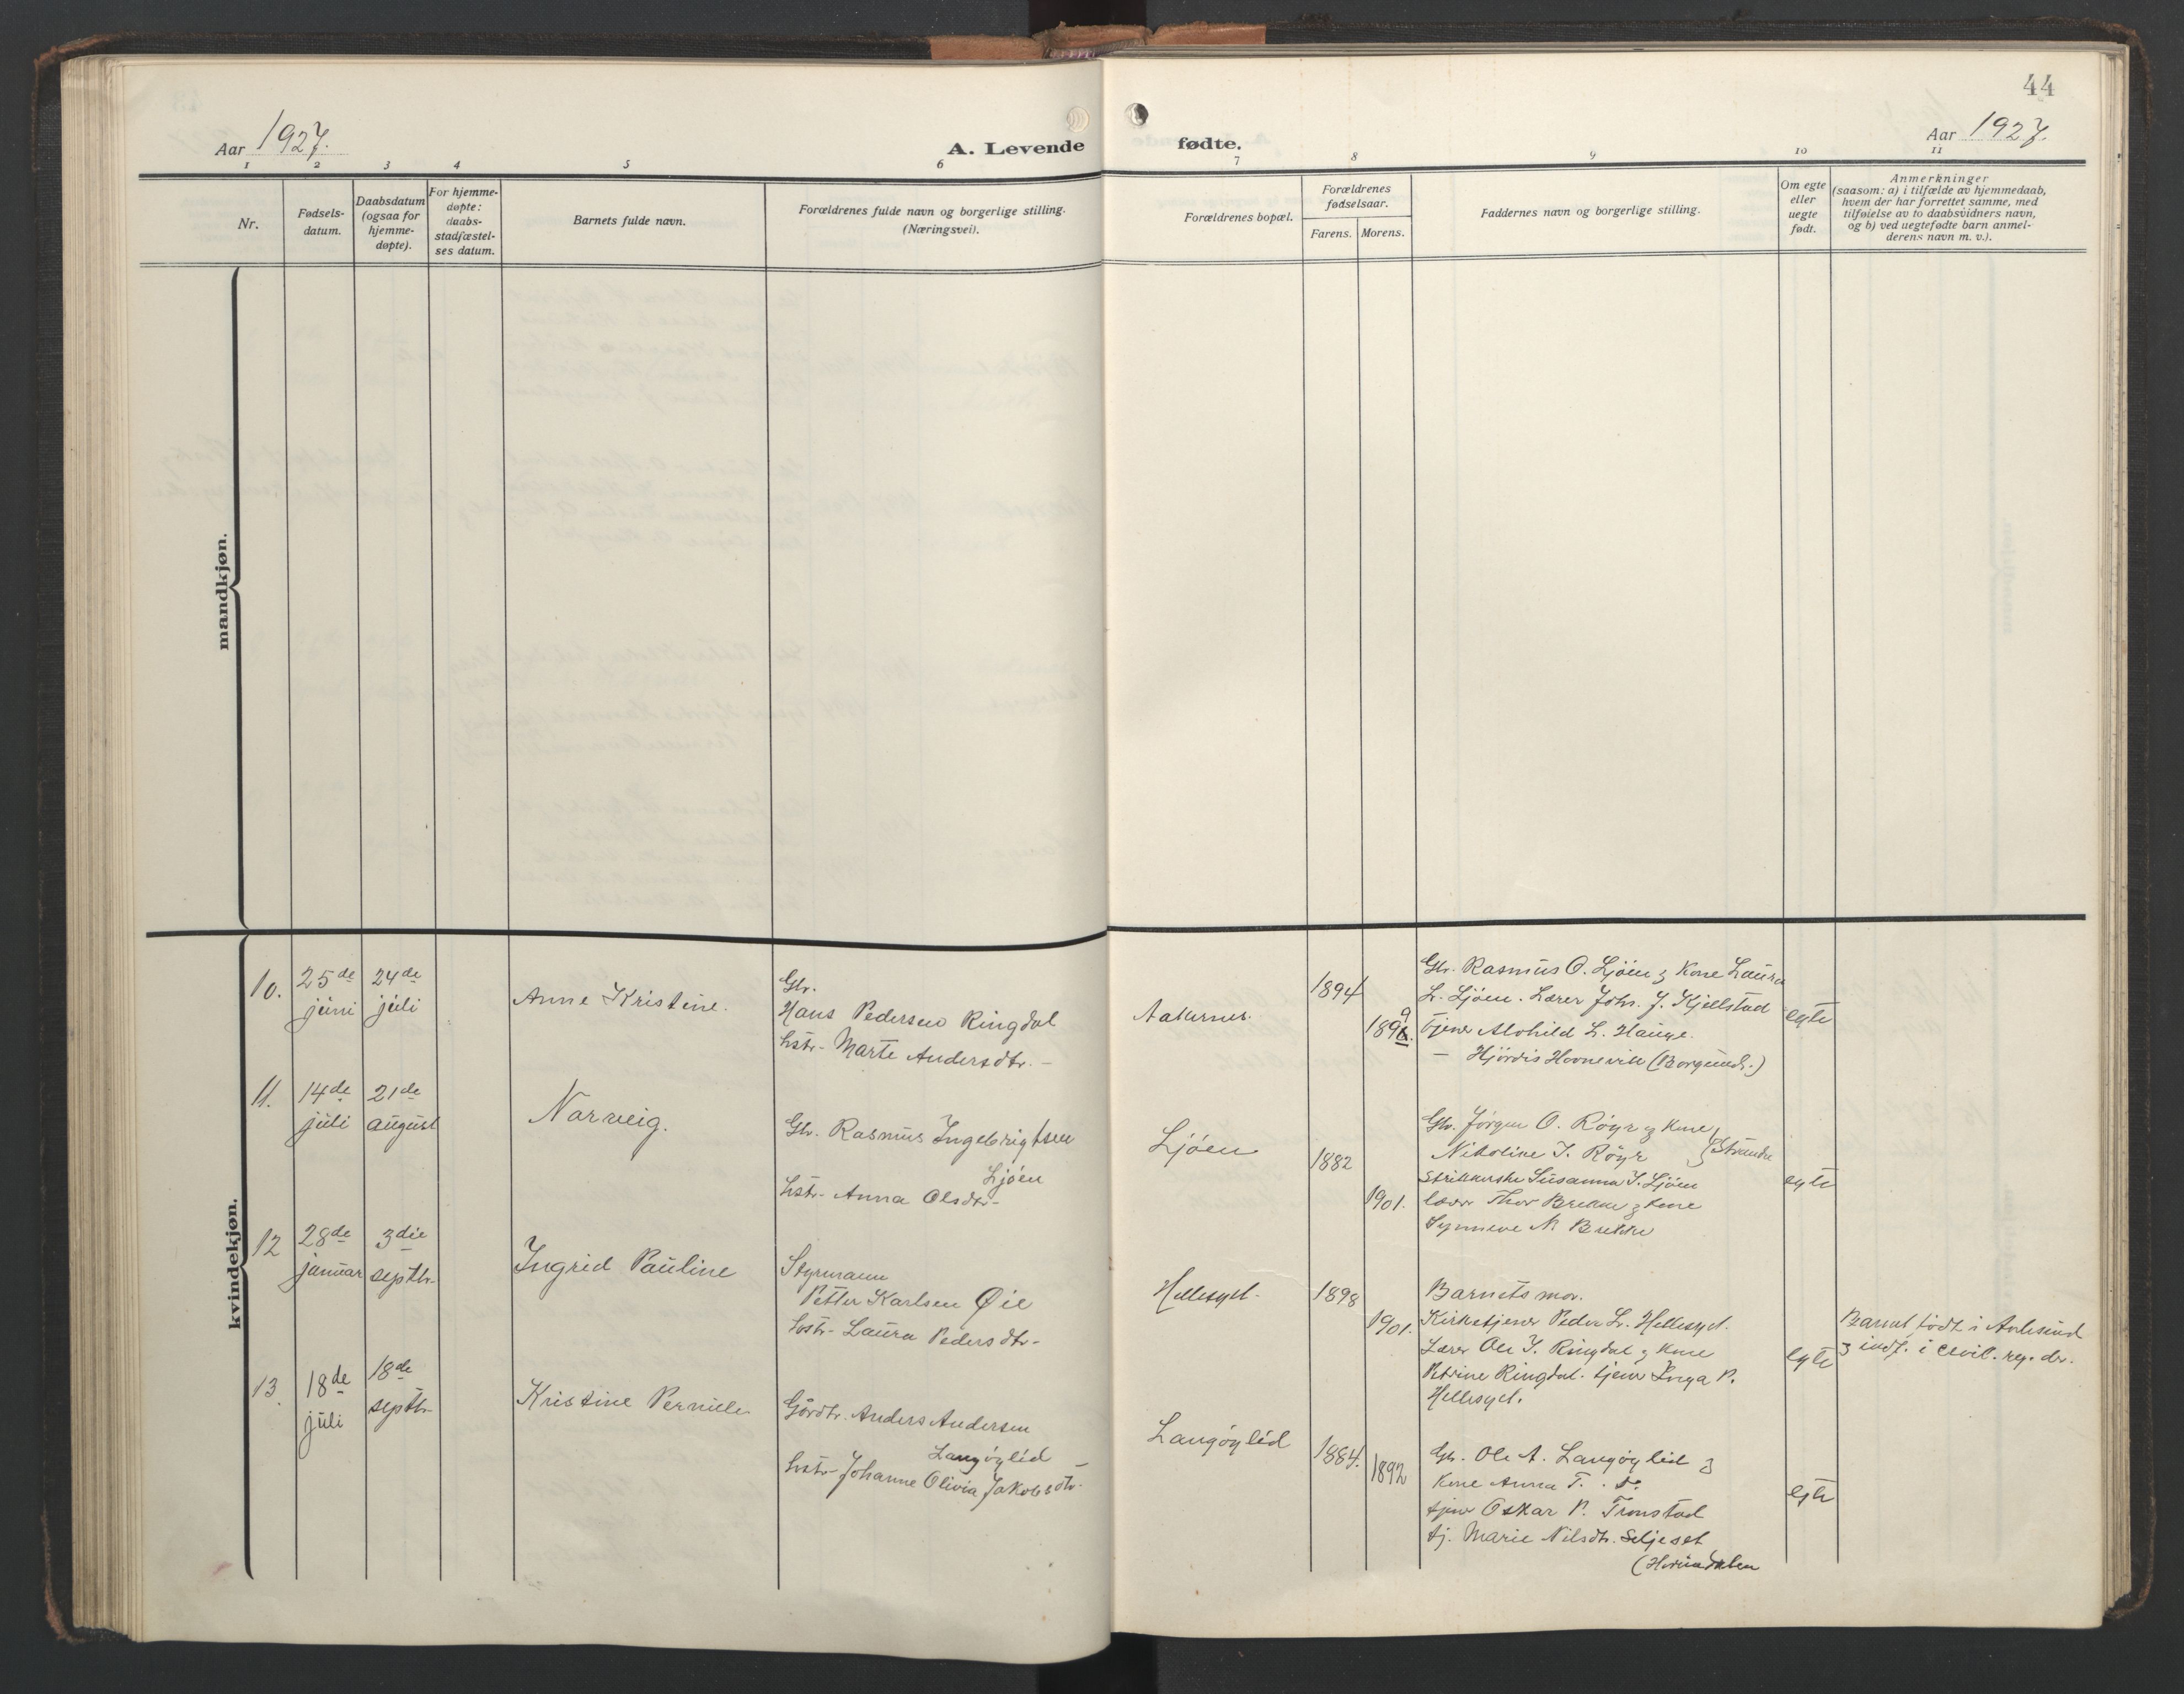 44
Aar 1927.
A. Levende
fødte.
Aar 1927.
1 2 3 4 5 6 7 8 9 10 11
Nr.
Fødsels-
datum.
Daabsdatum
(ogsaa for
hjemme-
døpte).
For hjemme-
døpte:
daabs-
stadfæstel-
ses datum.
Barnets fulde navn.
Forældrenes fulde navn og borgerlige stilling.
(Næringsvei).
Forældrenes bopæl.
Forældrenes
fødselsaar.
Farens. Morens.
Faddernes navn og borgerlige stilling.
Om egte
eller
uegte
født.
Anmerkninger
(saasom: a) i tilfælde av hjemmedaab,
hvem der har forrettet samme, med
tilføielse av to daabsvidners navn,
og b) ved uegtefødte barn anmel-
derens navn m. v.).
mandkjøn.
kvindekjøn.
10.
25de
juni
24de
juli
Anne Kristine.
Gbr.
Hans Pedersen Ringdal
hstr. Marte Andersdtr. -
Aakernes.
1894
189
Gbr. Rasmus O. Ljöen & Kone Laura
L. Ljöen. Lærer Johs. J. Kjellstad
Tjener Alvhild L. Hauge.
— Hjördis Hovnevik (Borgund.)
egte
11.
14de
juli
21de
august
Norveig.
Gbr. Rasmus Ingebrigtsen
Ljöen
hstr. Anna Olsdtr.
Ljöen
1882
1901.
Gbr. Jørgen O. Röyr & Kone
Nikoline I. Röyr } Stranda
Strikkerske Susanna I. Ljöen
lærer Thor Brekke & Kone
Synneve M Brekke
egte
12
28de
januar
3die
septbr.
Ingrid Pauline
Styrmann
Petter Karlsen Øie
hstr. Laura Pedersdtr.
Hellesylt.
1898
1901.
Barnets mor.
Kirketjener Peder L. Hellesylt.
Lærer Ole I. Ringdal & Kone
Petrine Ringdal. tjener Inga P.
Hellesylt.
egte
Barnet födt i Aalesund
& indf. i civil. reg. der.
13.
18de
juli
18de
septbr.
Kristine Pernille
Gårdbr. Anders Andersen
Langöylid
hstr. Johanne Olivia Jakobsdtr.
Langöylid
1884.
1892
Gbr. Ole A. Langöylid &
Kone Anna T.
tjener Oskar P. Tronstad
tj. Marie Nilsdtr. Seljeset
(Hornindalen
egte